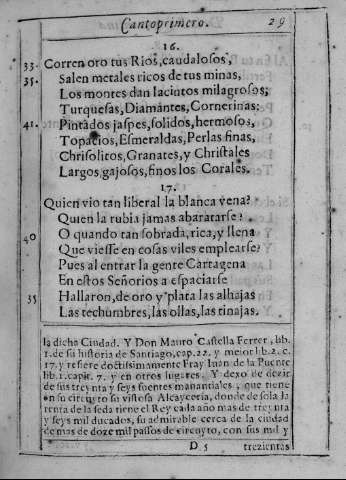 Cantoprimero. 29
16.
33. Corren oro tus Rios, caudalosos,
35. Salen metales ricos de tus minas,
Los montes dan Iacintos milagrosos;
Turquesas, Diamantes, Cornerinas:
41. Pintados jaspes, solidos, hermosos,
Topacios, Esmeraldas, Perlas finas,
Chrisolitos, Granates, y Christales
Largos, gajosos, finos los Corales.
17.
Quien vio tan liberal la blanca vena?
Quien la rubia jamas abaratarse?
40 O quando tan sobrada, rica, y llena
Que viesse en cosas viles emplearse?
Pues al entrar la gente Cartagena
En estos Señorios a espaciarse
35 Hallaron, de oro y plata las alhajas
Las techumbres, las ollas, las tinajas.
la dicha Ciudad. Y Don Mauro Castella Ferrer, lib.
1. de su historia de Santiago, cap. 22. y mejor lib. 2. c.
17. y refiere doctissimamente Fray Iuan de la Puente
lib. 1. capit. 7. y en otros lugares. Y dexo de dezir
de sus treynta y seys fuentes manantiales, que tiene
en su circuyto su vistosa Alcayceria, donde de sola la
renta de la seda tiene el Rey cada año mas de treynta
y seys mil ducados, su admirable cerca de la ciudad
de mas de doze mil passos de circuyto, con sus mil y
D 5 trezientas